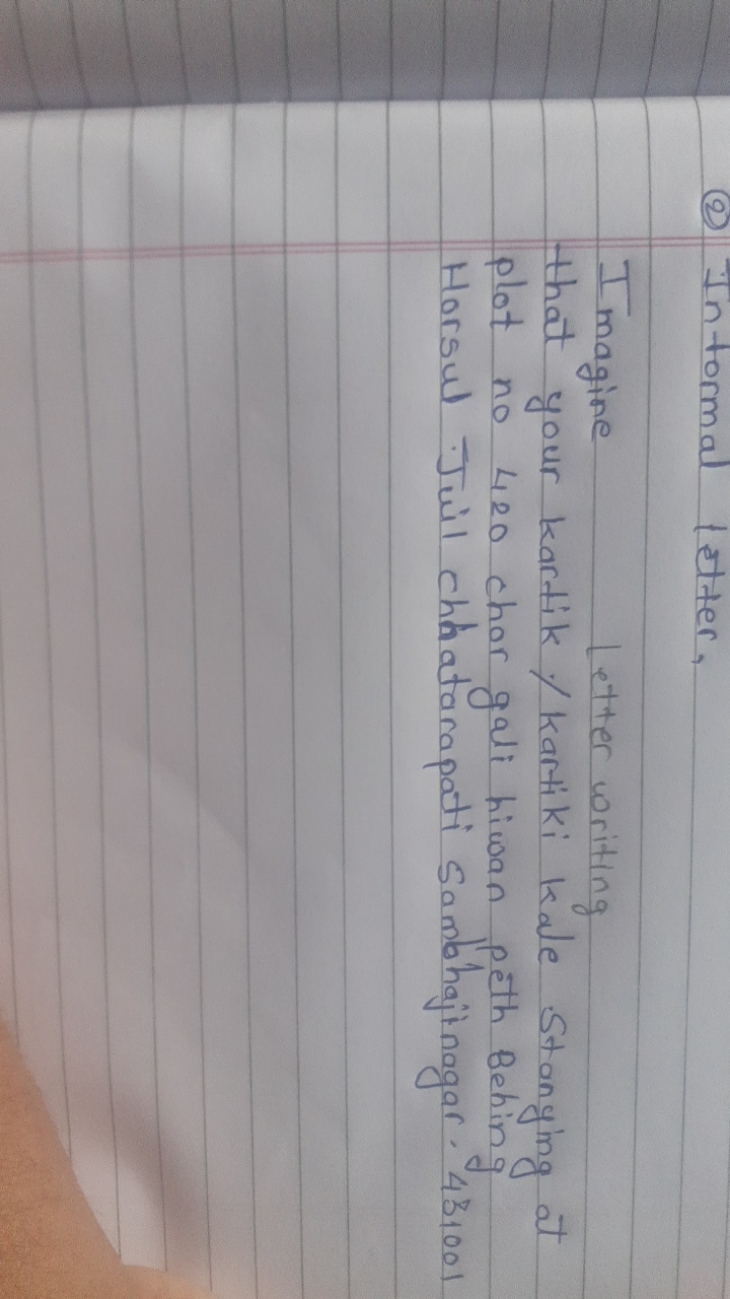 ② Informal letter,
Letter writing
Imagine
that your kartik / kartiki kale Stanying at
plot no 420 chor gali hiwan peth Behing
Horsul Juil chhatarapati Sambhajinagar. 431001